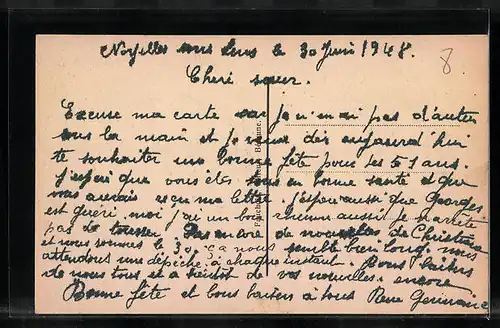 Noyelles sous Lens le 30 Juin 1948.
8
Cheri sœur.
Excuse ma carte car je n'ai pas d'autre
sous la main et je veux dès aujourd'hui
te souhaiter une bonne fête pour tes 61 ans.
J'espai que vous êtes tous en bonne santé et que
vous avez reçu ma lettre. J'espère aussi que Georges
est guéri moi j'ai un bon rhume aussi je n'arrête
pas de tousser. encore de nouvelles de Christiane
et nous sommes le 30. ça nous semble bien long. nous
attendons une dépêche à chaque instant. Bons baisers
de nous tous et à bientôt de vos nouvelles. encore
Bonne fête et bons baisers à tous Rene Germaine